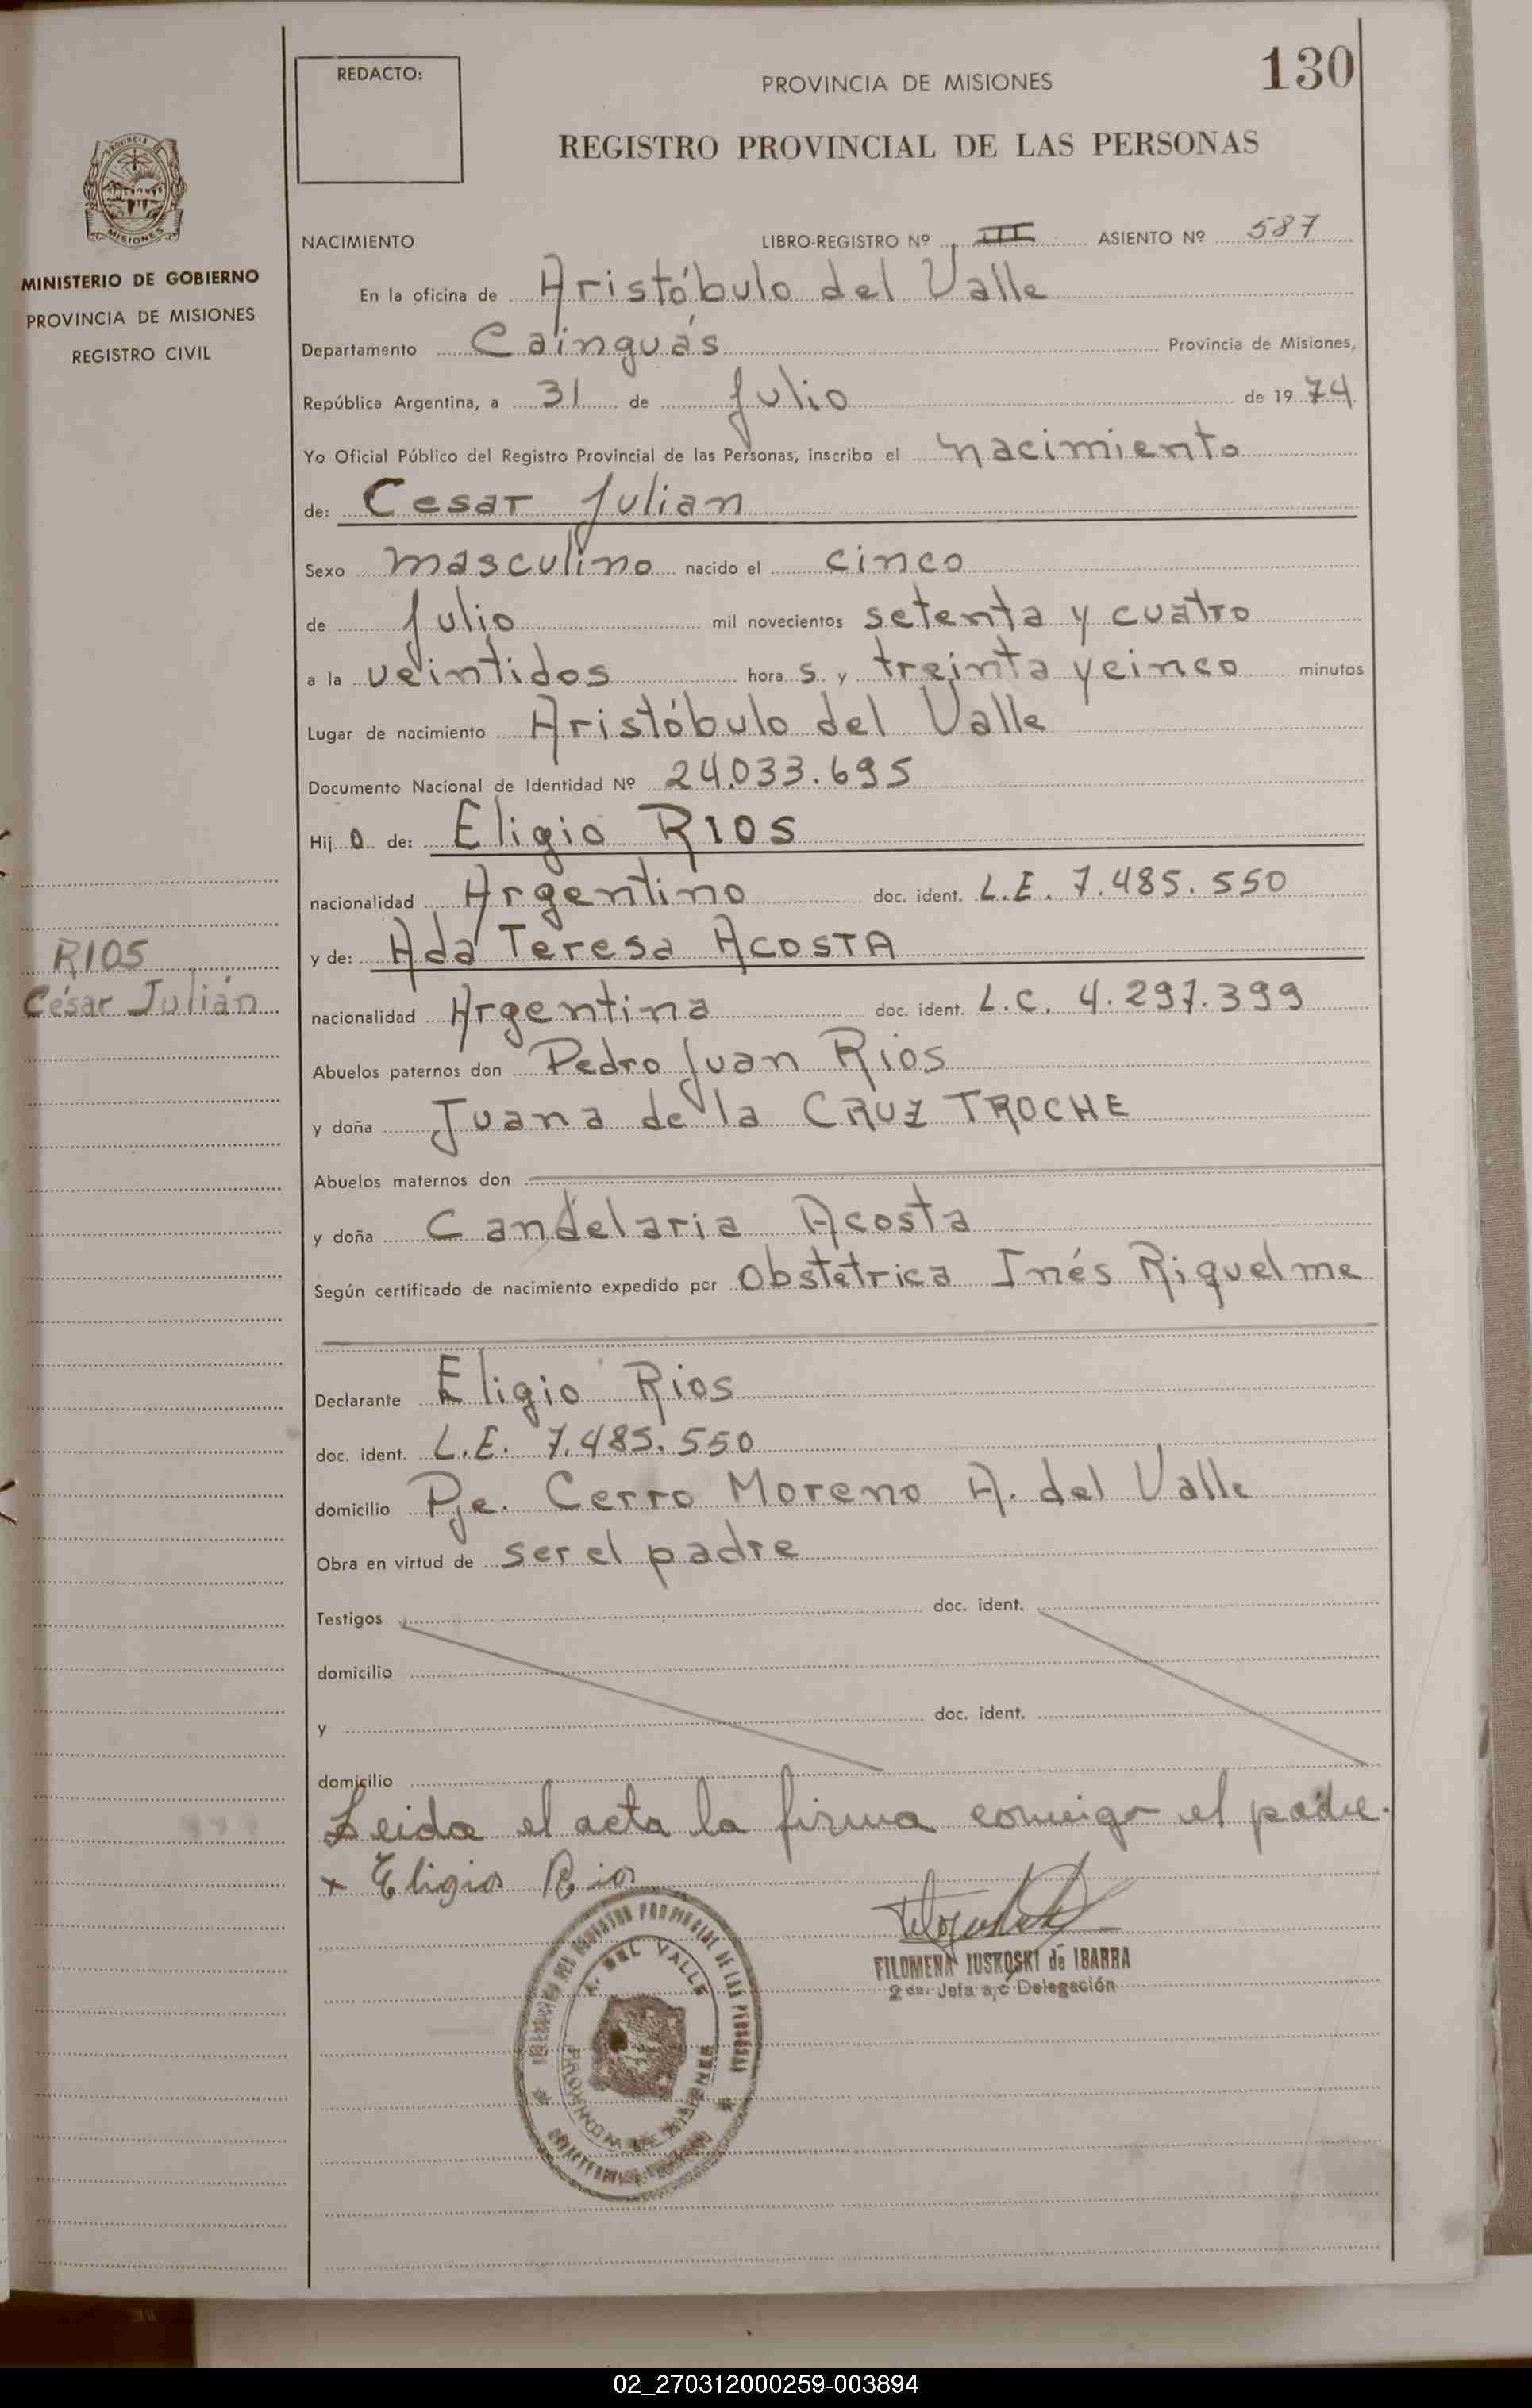 130
REDACTO:
PROVINCIA DE MISIONES
REGISTRO PROVINCIAL DE LAS PERSONAS
PROVINCIA
MISIONES
MINISTERIO DE GOBIERNO
PROVINCIA DE MISIONES
REGISTRO CIVIL
NACIMIENTO LIBRO-REGISTRO Nº III ASIENTO Nº 587
En la oficina de Aristóbulo del Valle
Departamento Cainguás Provincia de Misiones,
República Argentina, a 31 de Julio de 1974
Yo Oficial Público del Registro Provincial de las Personas, inscribo el nacimiento
de: Cesar Julian
Sexo masculino nacido el cinco
de Julio mil novecientos setenta y cuatro
a la veintidos hora s y treinta y cinco minutos
Lugar de nacimiento Aristóbulo del Valle
Documento Nacional de Identidad Nº 24.033.695
Hij o de: Eligio RIOS
nacionalidad Argentino doc. ident. L.E. 7.485.550
y de: Ada Teresa ACOSTA
RIOS
César Julián
nacionalidad Argentina doc. ident. L.C. 4.297.399
Abuelos paternos don Pedro Juan Rios
y doña Juana de la CRUZ TROCHE
Abuelos maternos don
y doña Candelaria Acosta
Según certificado de nacimiento expedido por Obstétrica Inés Riquelme
Declarante Eligio Rios
doc. ident. L.E. 7.485.550
domicilio Pje. Cerro Moreno A. del Valle
Obra en virtud de ser el padre
Testigos doc. ident.
domicilio
y doc. ident.
domicilio
Leida el acta la firma conmigo el padre.
x Eligio Rios
FILOMENA IUSKOSKI de IBARRA
2da. Jefa a/c Delegación
DELEGACION DEL REGISTRO PROVINCIAL DE LAS PERSONAS
A. DEL VALLE
PROVINCIA DE MISIONES
02_270312000259-003894